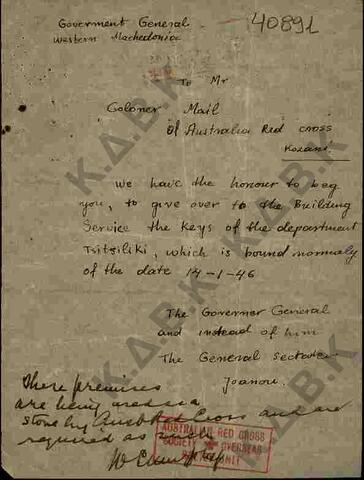 Goverment General
Western Machedonia
40891
To Mr
Coloner Mail
Of Australia Red cross
Kozani
We have the honour to beg
you, to give over to the Building
Service the keys of the department
Tsitsiliki, which is bound normaly
of the date 14-1-46
The Governer General
and instead of him
The General sectretar
Joanou.
These premises
are being used as a
store by Aust Red Cross and are
required as such
AUSTRALIAN RED CROSS
SOCIETY OVERSEAS
UNIT
Κ.Δ.Β.Κ
Κ.Δ.Β.Κ
Κ.Δ.Β.Κ